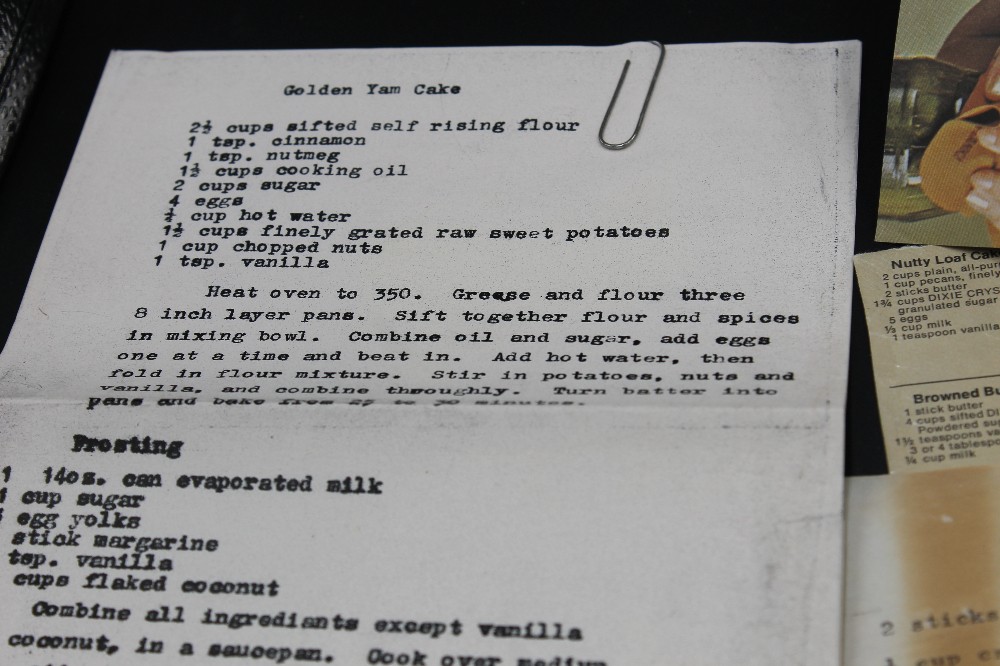 Golden Yam Cake
2½ cups sifted self rising flour
1 tsp. cinnamon
1 tsp. nutmeg
1½ cups cooking oil
2 cups sugar
4 eggs
cup hot water
1½ cups finely grated raw sweet potatoes
1 cup chopped nuts
1 tsp. vanilla
Heat oven to 350. Grease and flour three
8 inch layer pans. Sift together flour and spices
in mixing bowl. Combine oil and sugar, add eggs
one at a time and beat in. Add hot water, then
fold in flour mixture. Stir in potatoes, nuts and
vanilla, and combine throughly. Turn batter into
pans and bake from to minutes.
Frosting
1 14oz. can evaporated milk
1 cup sugar
egg yolks
stick margarine
tsp. vanilla
cups flaked coconut
Combine all ingredients except vanilla
coconut, in a saucepan. Cook over medium
Nutty Loaf Cake
2 cups plain, all-pur
1 cup pecans, finely
2 sticks butter
1¾ cups DIXIE CRYS
granulated sugar
5 eggs
½ cup milk
1 teaspoon vanilla
Browned Bu
1 stick butter
4 cups sifted DI
Powdered su
1½ teaspoons va
3 or 4 tablespo
¼ cup milk
2 sticks
1 cup